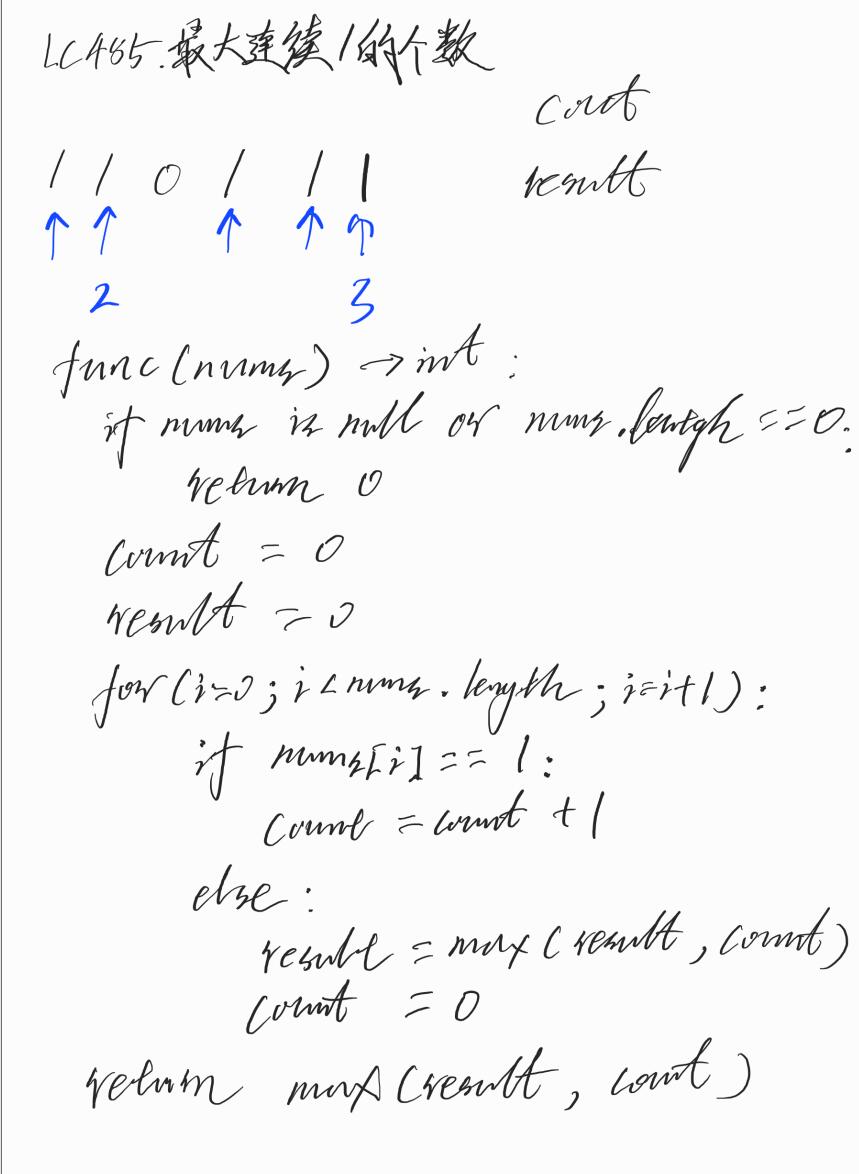 LC485.最大连续1的个数
count
1 1 0 1 1 1
result
↑ ↑ ↑ ↑ ↑
2 3
func(nums) → int :
if nums is null or nums.length == 0:
return 0
count = 0
result = 0
for(i=0; i<nums.length; i=i+1):
if nums[i] == 1:
count = count + 1
else:
result = max(result, count)
count = 0
return max(result, count)